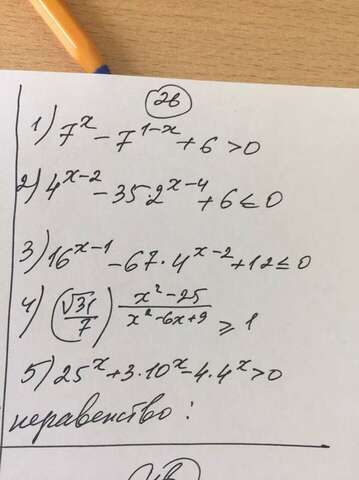 2в
1) 7^x - 7^{1-x} + 6 > 0
2) 4^{x-2} - 35·2^{x-4} + 6 ≤ 0
3) 16^{x-1} - 67·4^{x-2} + 12 ≤ 0
4) (√31/7)^{(x²-25)/(x²-6x+9)} ≥ 1
5) 25^x + 3·10^x - 4·4^x > 0
неравенство: